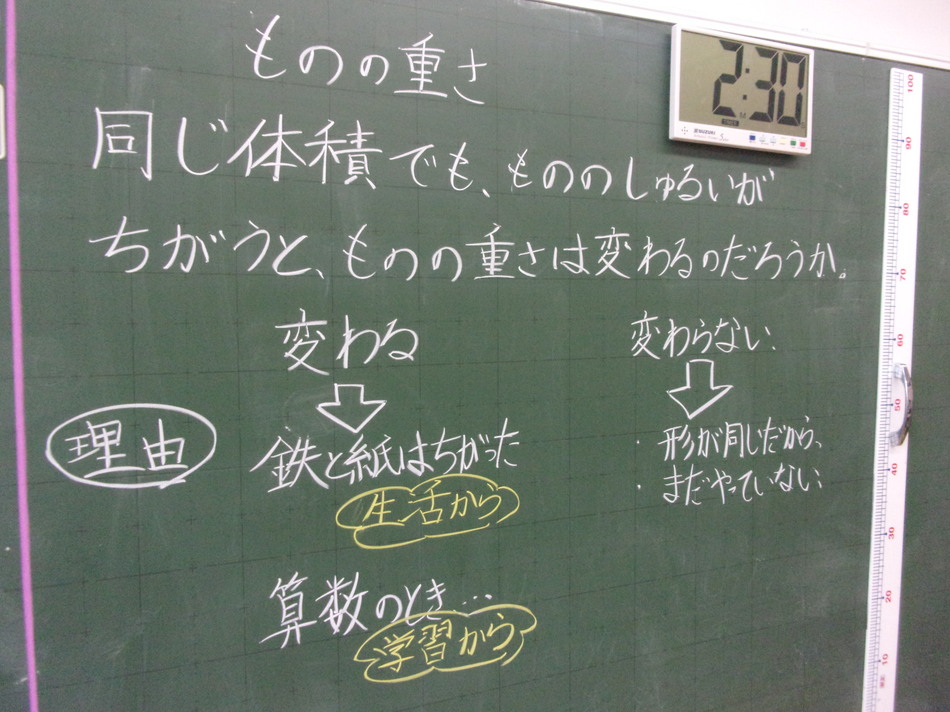 ものの重さ
2:30
同じ体積でも、もののしゅるいが
ちがうと、ものの重さは変わるのだろうか。
変わる
変わらない
理由
鉄と紙はちがった
生活から
・形が同じだから、
・まだやっていない
算数のとき…
学習から
100
90
80
70
60
50
40
30
20
10